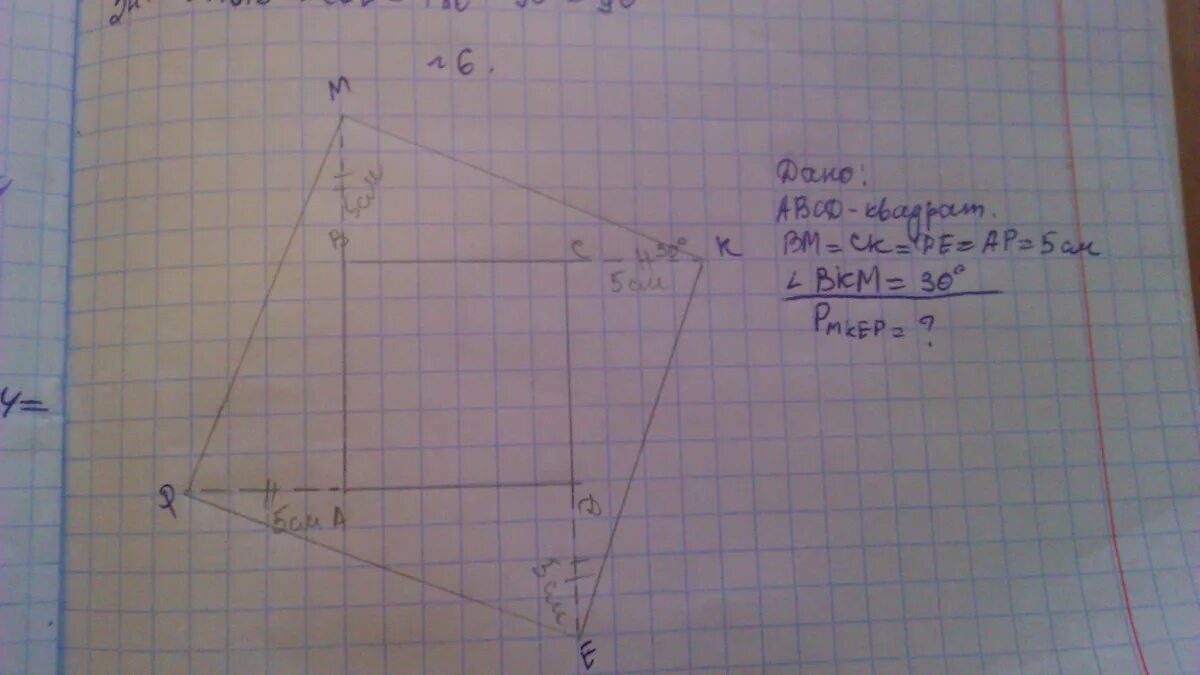 №6.
M
5см
B
C
30°
K
5см
P
5см
A
D
5см
E
Дано:
ABCD-квадрат.
BM=CK=DE=AP=5см
∠BKM=30°
Pмкер=?
4=